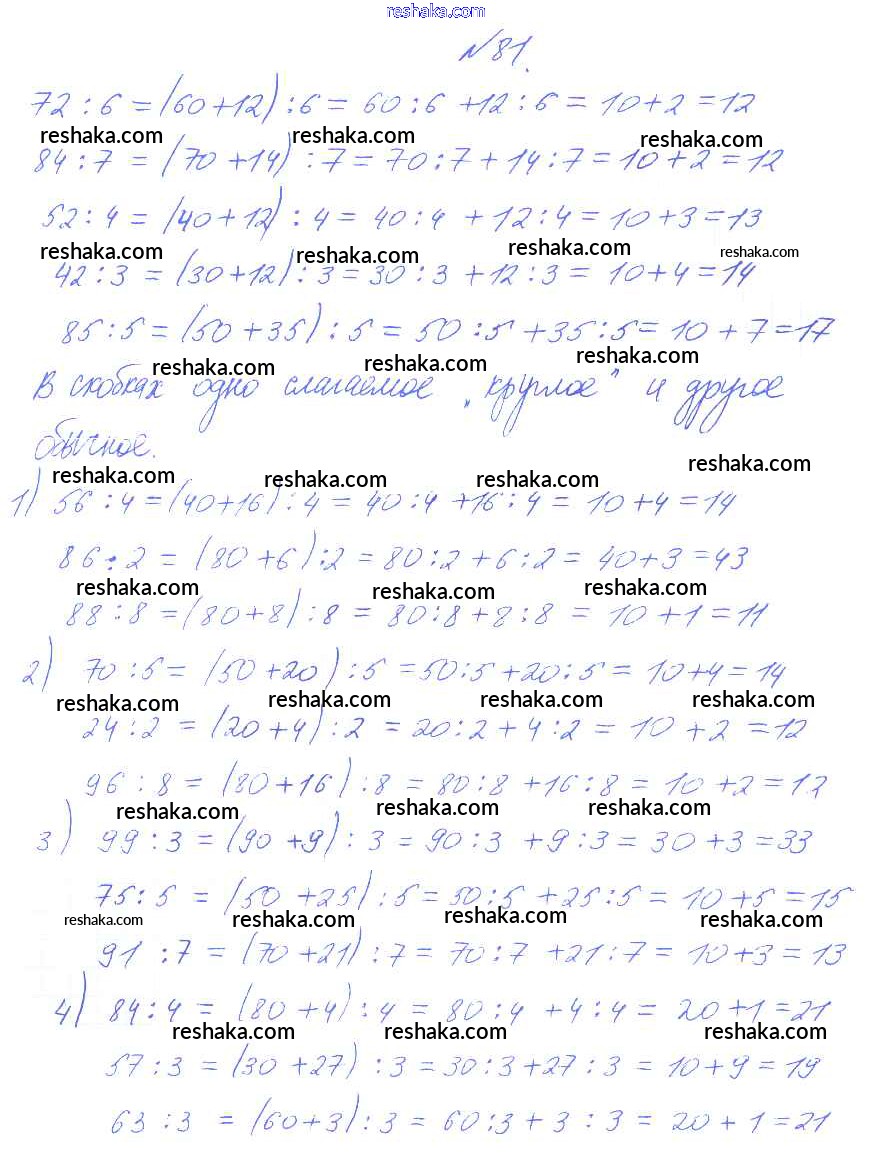 reshaka.com
№81.
72 : 6 = (60+12) : 6 = 60 : 6 +12 : 6 = 10+2 =12
reshaka.com reshaka.com reshaka.com
84 : 7 = (70 +14) : 7 = 70 : 7 + 14 : 7 = 10 + 2 = 12
52 : 4 = (40+12) : 4 = 40 : 4 + 12 : 4 = 10+3 =13
reshaka.com reshaka.com reshaka.com reshaka.com
42 : 3 = (30+12) : 3 = 30 : 3 +12 : 3 = 10+4 =14
85 : 5 = (50 +35) : 5 = 50 : 5 +35 : 5 = 10 + 7 =17
reshaka.com reshaka.com reshaka.com
В скобках одно слагаемое „круглое" и другое
обычное.
reshaka.com reshaka.com reshaka.com reshaka.com
1) 56 : 4 = (40+16) : 4 = 40 : 4 +16 : 4 = 10+4 =14
86 : 2 = (80 +6) : 2 = 80 : 2 + 6 : 2 = 40+3 =43
reshaka.com reshaka.com reshaka.com
88 : 8 = (80+8) : 8 = 80 : 8 + 8 : 8 = 10 +1 = 11
2) 70 : 5 = (50 +20) : 5 = 50 : 5 +20 : 5 = 10+4 = 14
reshaka.com reshaka.com reshaka.com reshaka.com
24 : 2 = (20 +4) : 2 = 20 : 2 + 4 : 2 = 10 + 2 = 12
96 : 8 = (80 +16) : 8 = 80 : 8 +16 : 8 = 10 +2 =12
reshaka.com reshaka.com reshaka.com
3) 99 : 3 = (90 +9) : 3 = 90 : 3 +9 : 3 = 30 +3 =33
75 : 5 = (50 +25) : 5 = 50 : 5 +25 : 5 = 10 +5 =15
reshaka.com reshaka.com reshaka.com reshaka.com
91 : 7 = (70 +21) : 7 = 70 : 7 +21 : 7 = 10+3 = 13
4) 84 : 4 = (80 +4) : 4 = 80 : 4 +4 : 4 = 20 +1 =21
reshaka.com reshaka.com reshaka.com
57 : 3 = (30 +27) : 3 = 30 : 3 +27 : 3 = 10 + 9 = 19
63 : 3 = (60+3) : 3 = 60 : 3 + 3 : 3 = 20 + 1 = 21